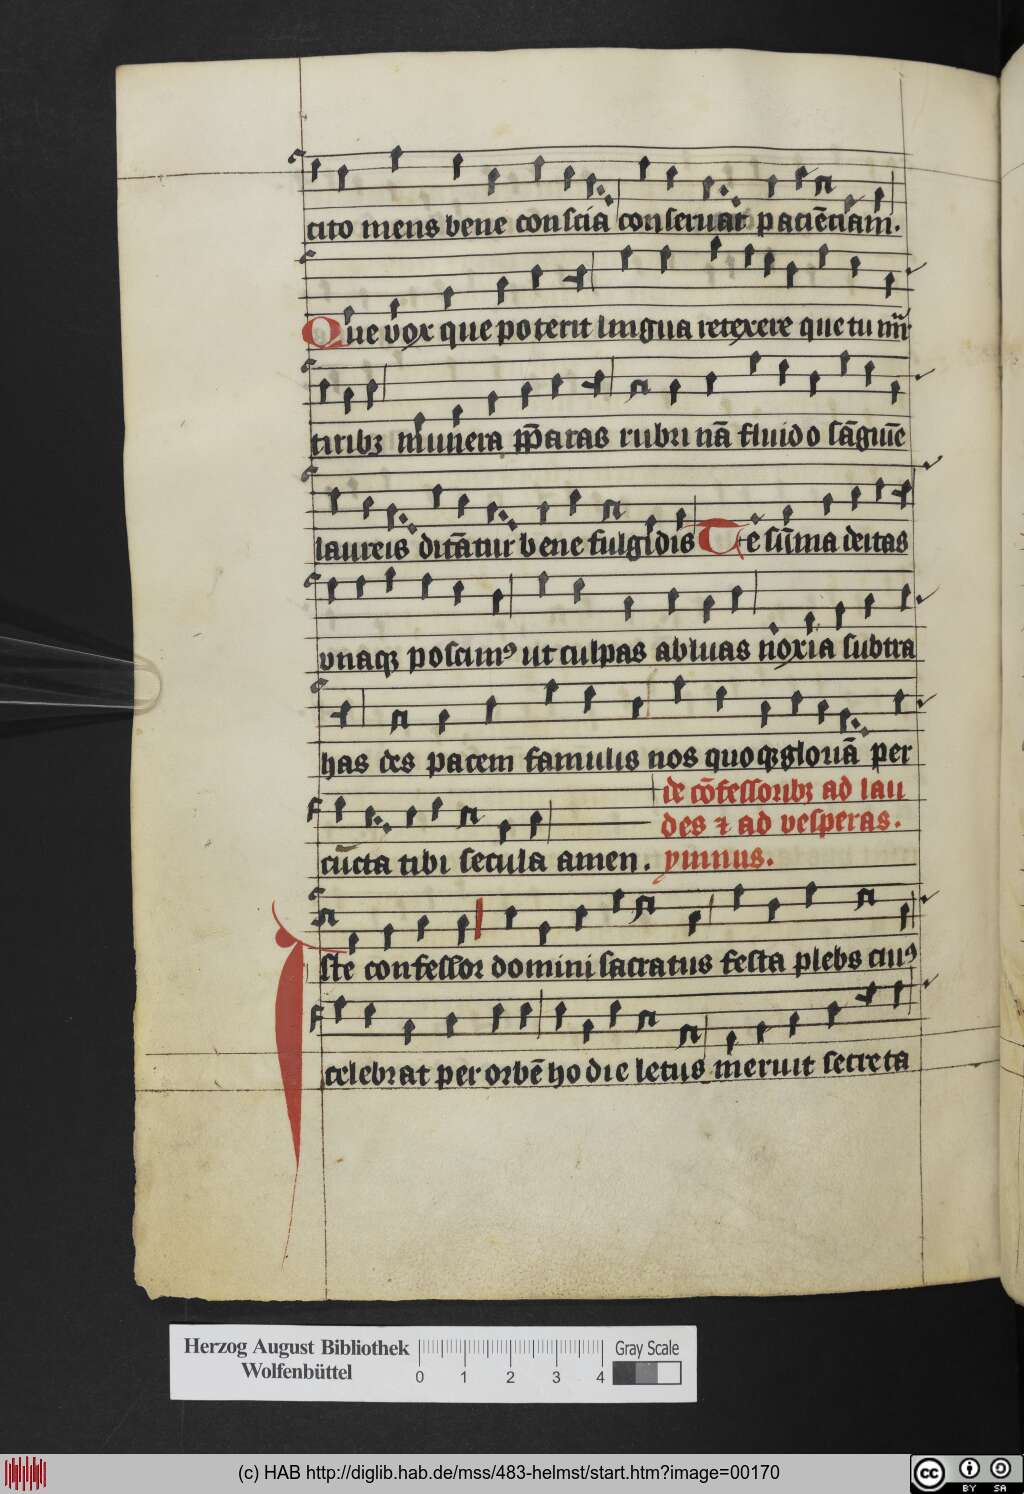 cito mens bene conscia conseruat paciēciam.
Que vox que poterit lingua retexere que tu mr̄
tiribꝫ munera p̄paras rubri nā fluido sāguīe
laureis ditātur bene fulgidis Te sūma deitas
vnaqꝫ poscimꝰ ut culpas abluas noxia subtra
has des pacem famulis nos quoqꝫ gloriā per
de cōfessoribꝫ ad lau
des ⁊ ad vesperas.
cūcta tibi secula amen. ymnus.
Iste confessor domini sacratus festa plebs cuiꝰ
celebrat per orbē hodie letus meruit secreta
Herzog August Bibliothek
Wolfenbüttel
0 1 2 3 4
Gray Scale
(c) HAB http://diglib.hab.de/mss/483-helmst/start.htm?image=00170
cc BY SA